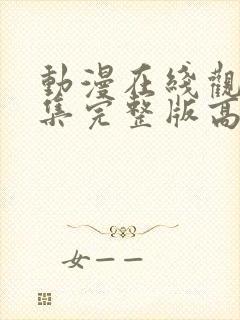 動漫在綫觀
集完整版高
女——